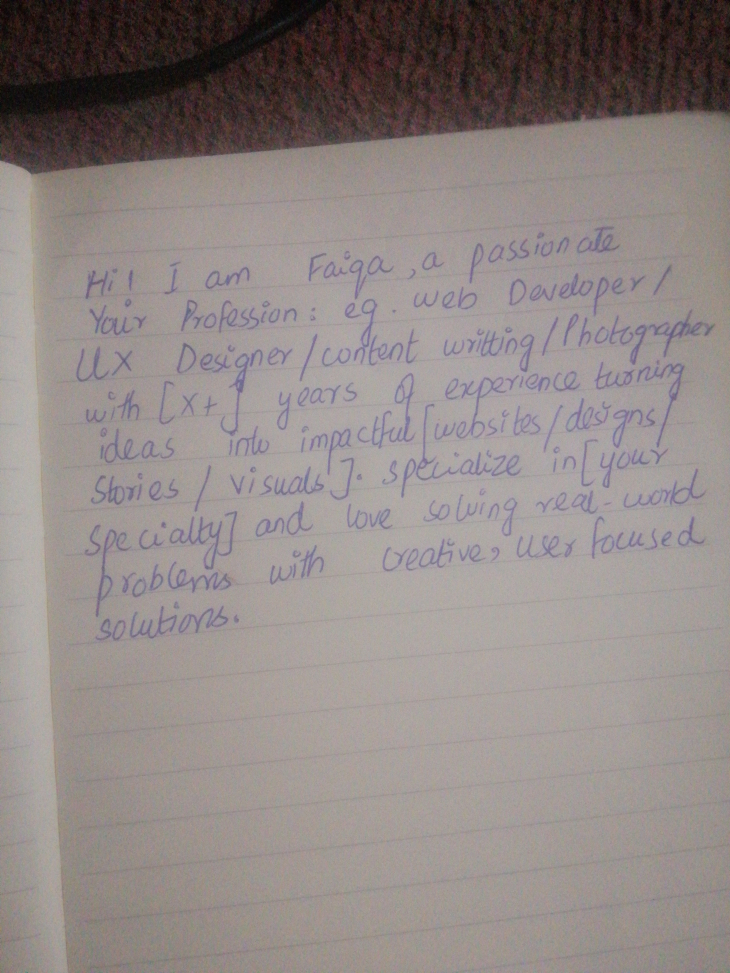 Hi! I am Faiqa, a passionate
Your Profession: eg. web Developer/
UX Designer/content writting/Photographer
with [X+] years of experience turning
ideas into impactful [websites/designs/
Stories / visuals]. specialize in [your
specialty] and love solving real-world
problems with creative, user focused
solutions.